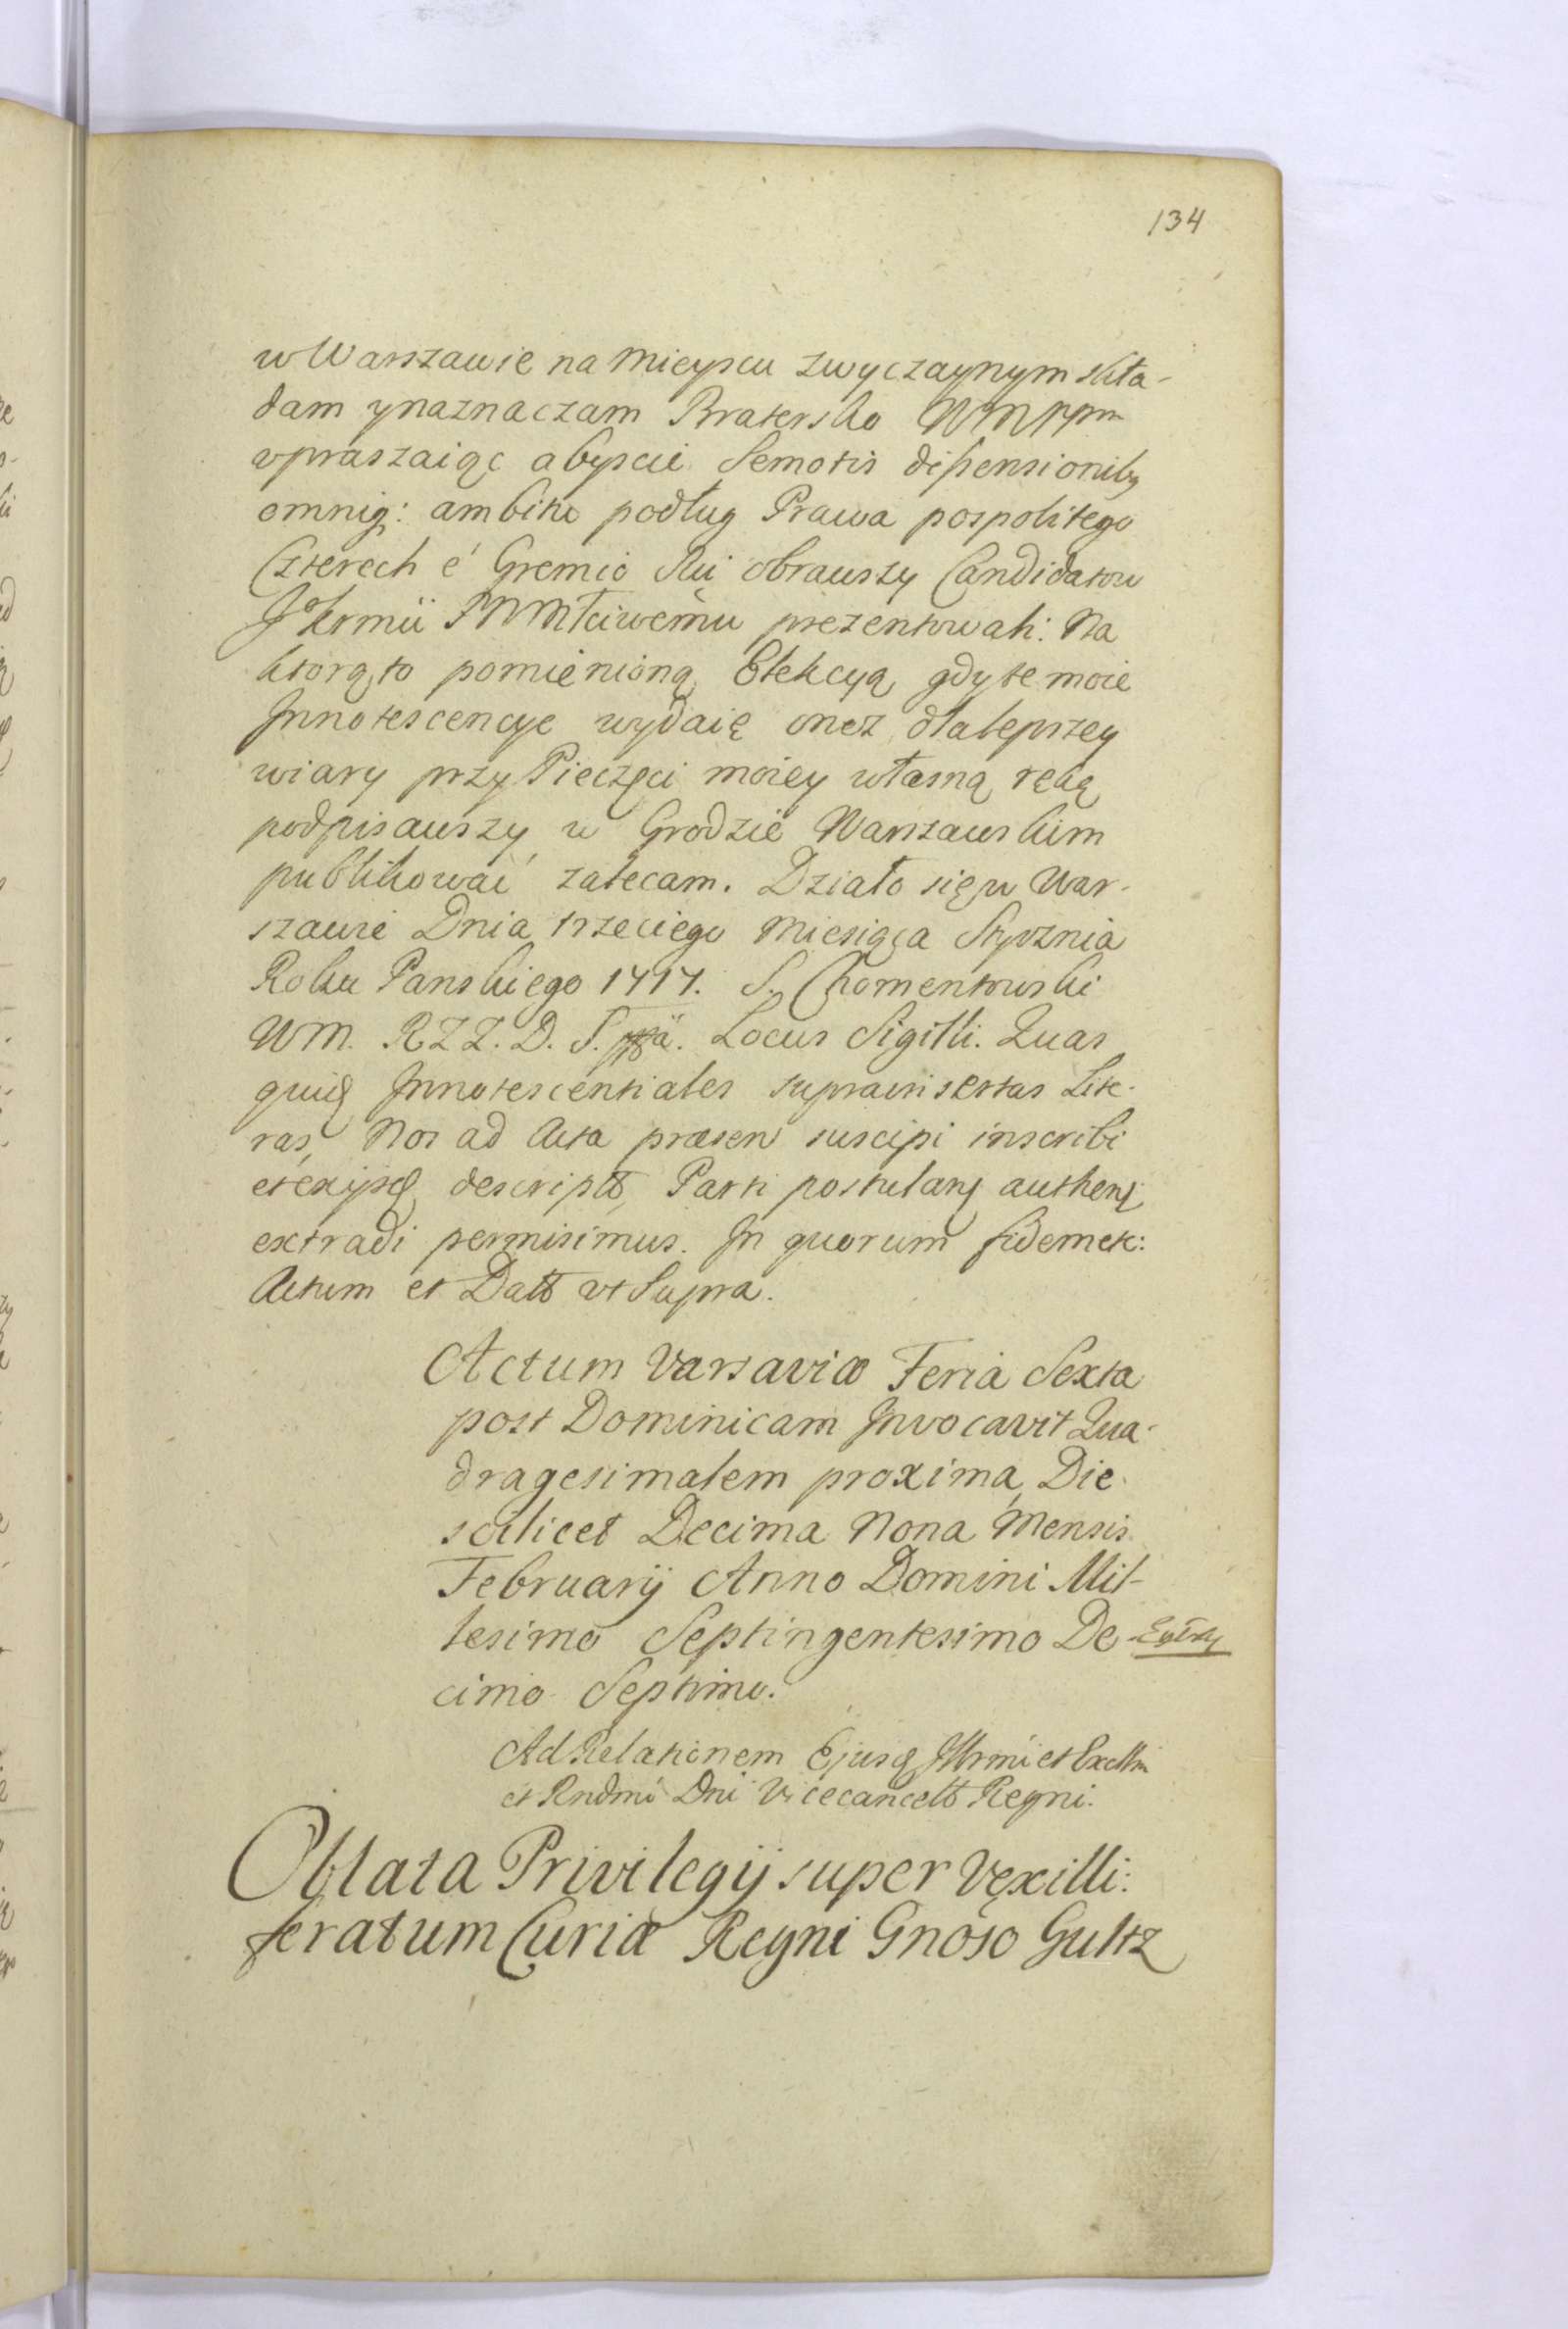 134
w Warszawie na Mieyscu zwyczaynym skła-
dam y naznaczam Bratersko WMMPPm
vpraszaiąc abyscie Semotis disensionibq
omniq: ambitu podług Prawa pospolitego
Czterech é Gremio Sui obrawszy Candidatow
JKrmii PNMłciwemu prezentowali: Na
ktorą to pomienioną Elekcyą gdy te moie
Innotescencye wydaię onez dla lepszey
wiary przy Pieczęci moiey własną ręką
podpisawszy w Grodzie Warszawskim
publikowac zalecam. Działo się w War-
szawie Dnia trzeciego Miesiąca Stycznia
Roku Panskiego 1717. S. Chomentowski
WM. RZZ. D. S. Locus Sigilli. Quas
quiq Innotescentiales suprainsertas Lite-
ras, Nos ad Acta præsen suscipi inscribi
et ex ijsq descript, Parti postulanq authenq
extradi permisimus. In quorum fidem etc:
Actum et Datt vt Supra.
Actum Varsaviæ Feria Sexta
post Dominicam Invocavit Qua-
dragesimalem proxima, Die
scilicet Decima Nona Mensis
Februarij Anno Domini Mil-
lesimo Septingentesimo De-
cimo Septimo.
Ad Relationem Ejusq Illrmi et Excellmi
et Rndmi Dni Vicecancell Regni.
Oblata Privilegij super Vexilli:
feratum Curiæ Regni Gnoso Gultz